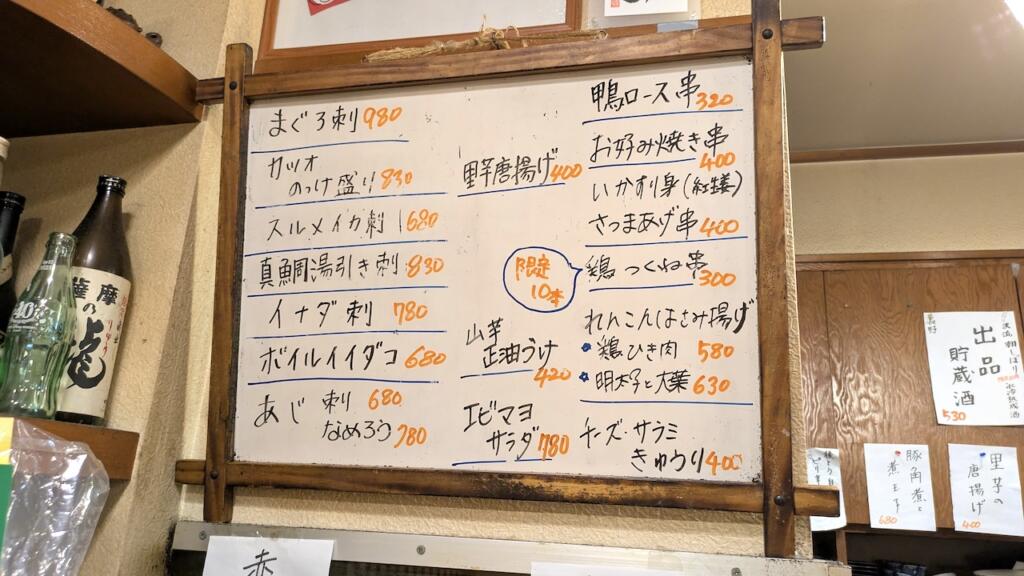 まぐろ刺 980
カツオ
のっけ盛り 830
スルメイカ刺 680
真鯛湯引き刺 830
イナダ刺 780
ボイルイイダコ 680
あじ 刺り 680
なめろう 780
野芋唐揚げ 400
限定
10本
山芋
正油うけ 420
エビマヨ
サラダ 780
鴨ロース串 320
お好み焼き串
400
いかすり身(紅生姜)
さつまあげ串 400
鶏つくね串
300
れんこんはさみ揚げ
鶏ひき肉 580
明太子と大葉 630
チーズ・サラミ
きゅうり 400
薩摩
の
出品
貯蔵酒
530
豚角煮と
煮玉子
680
里芋の
唐揚げ
400
赤